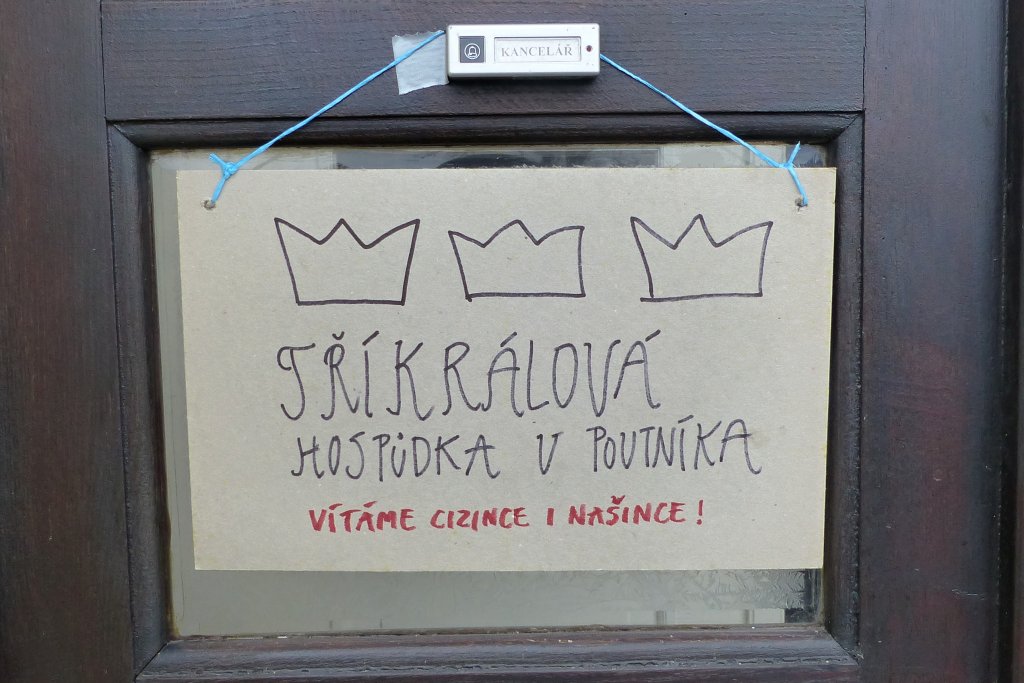 KANCELÁŘ
TŘÍKRÁLOVÁ
HOSPŮDKA U POUTNÍKA
VÍTÁME CIZINCE I NAŠINCE!